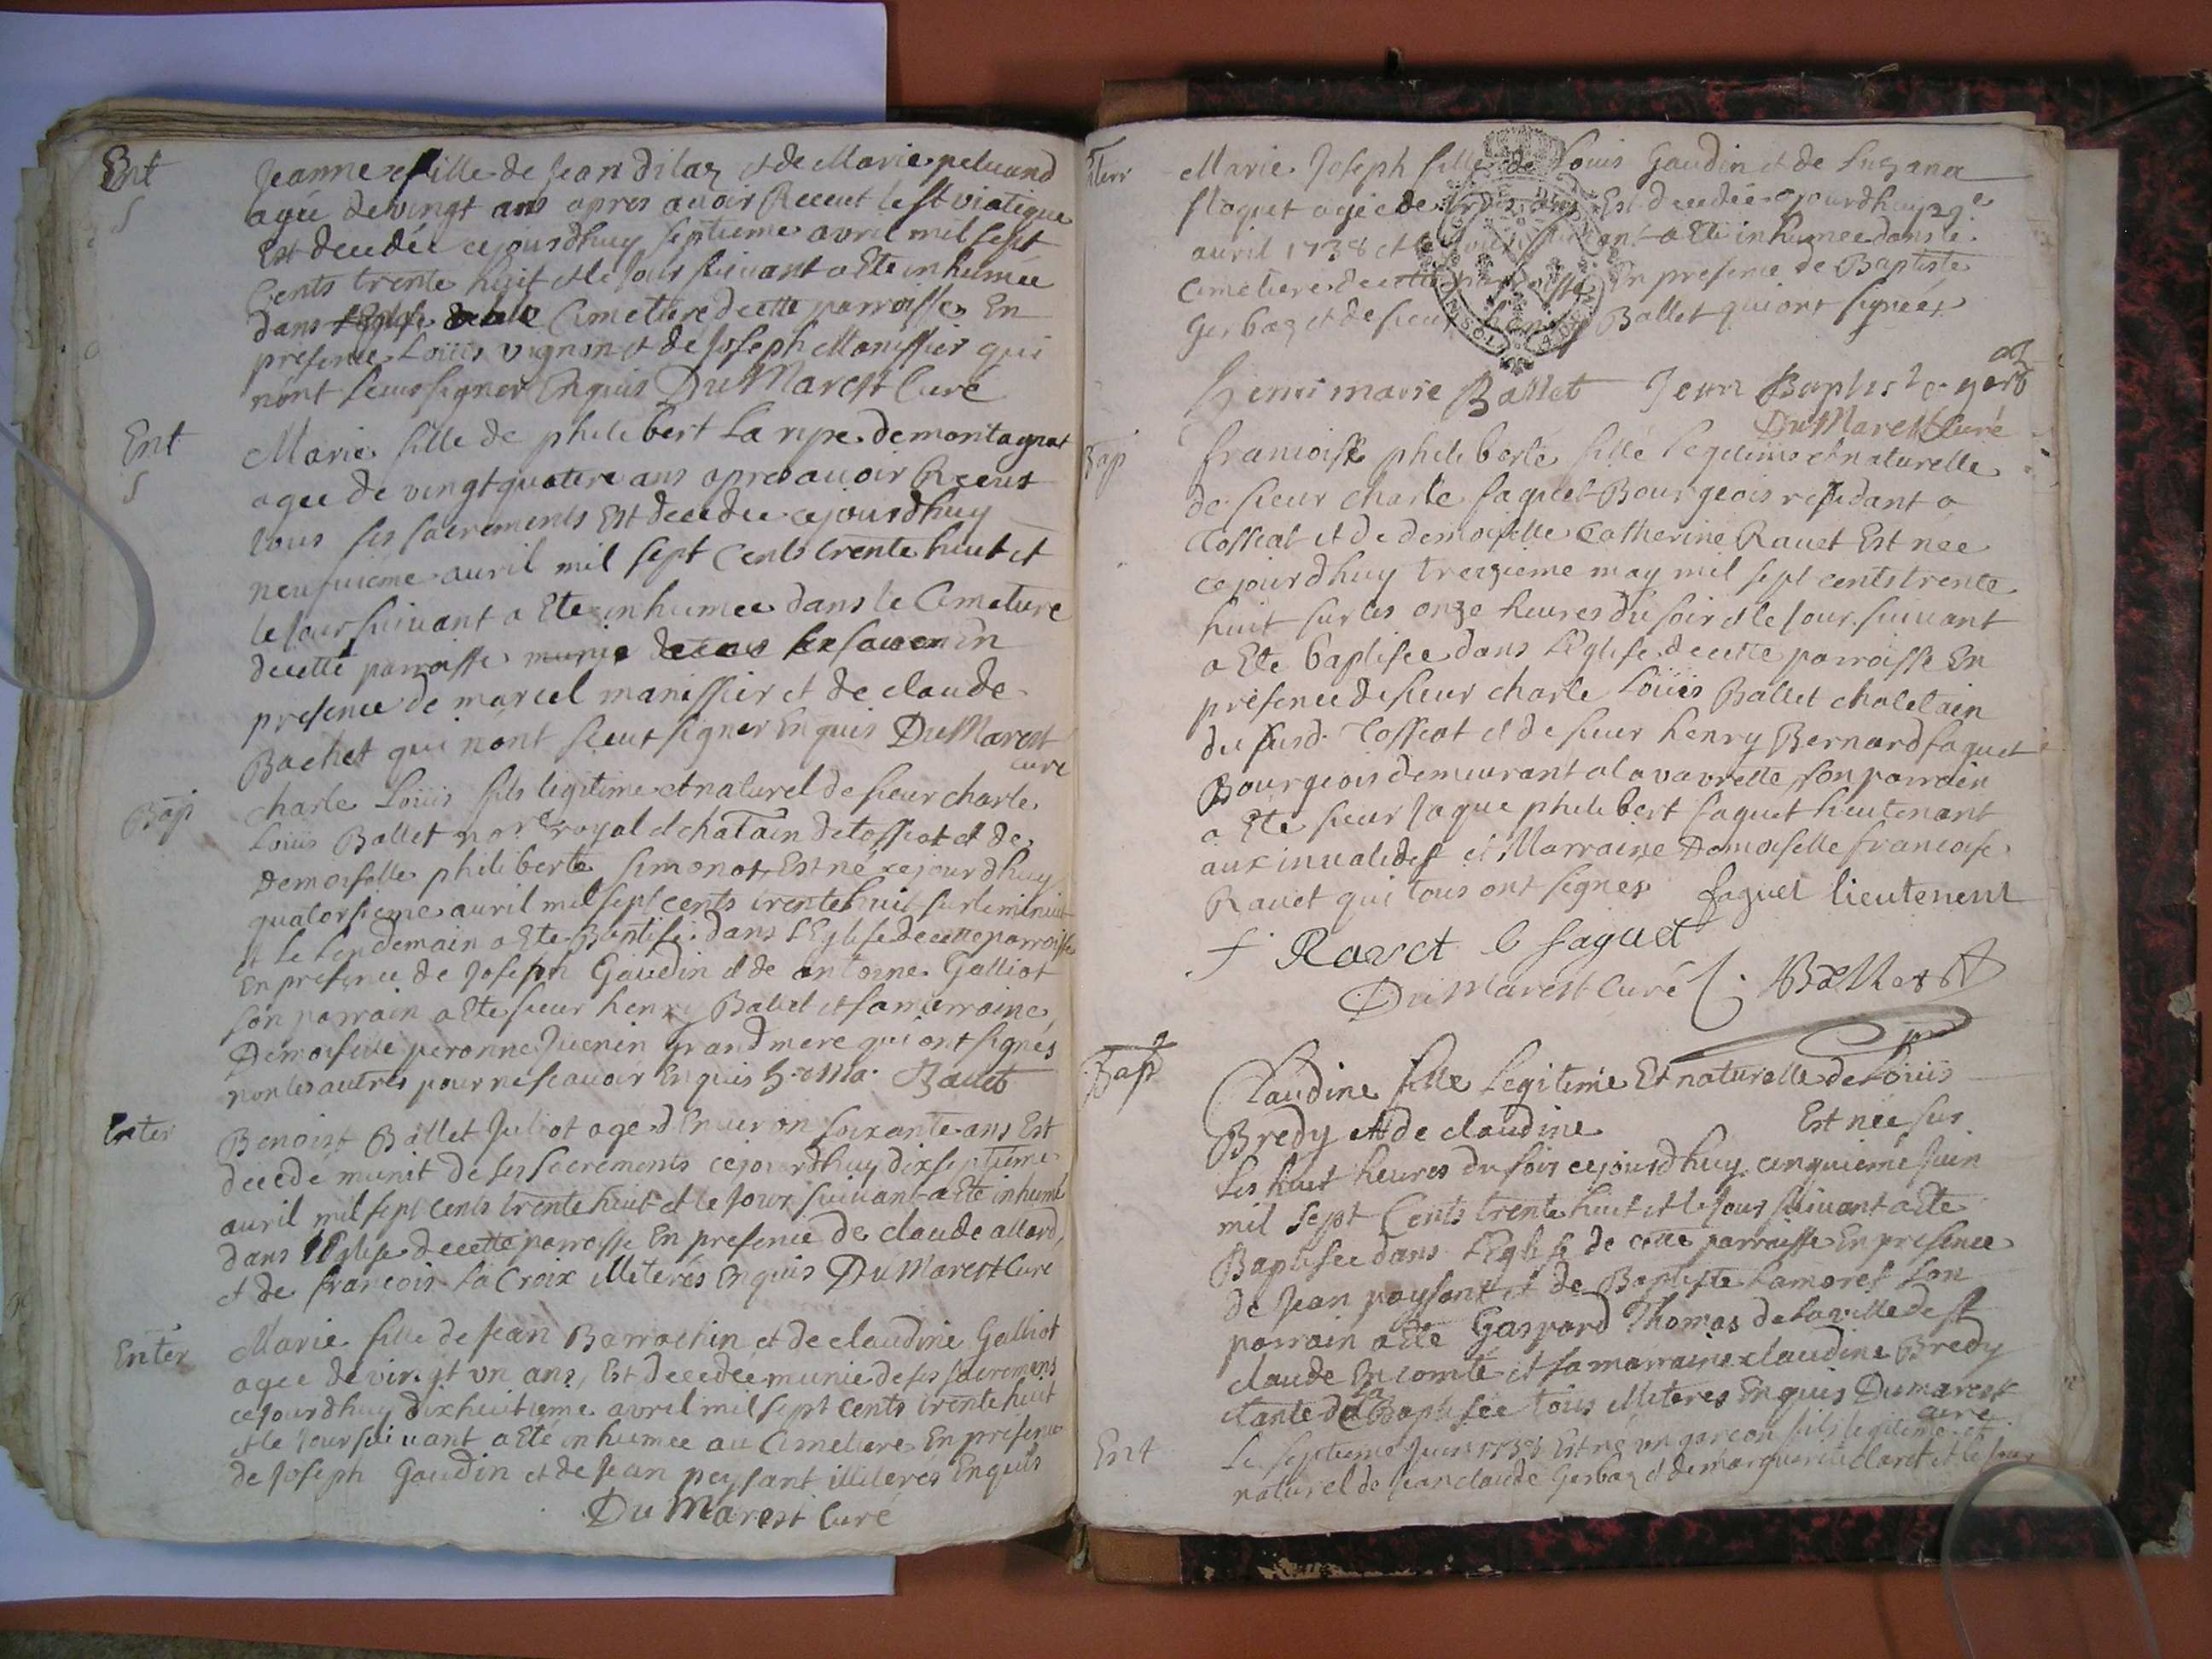 Ent
S
Jeanne fille de Jean dilaz et de Marie peluand
agée de vingt ans apres avoir Receut le St viatique
Est decedée cejourdhuy septieme avril mil sept
Cents trente huit et le Jour suivant a Ete inhumée
dans l'Eglise le Cimetiere de cette parroisse En
presence Loüis vignon et de Joseph Manissier qui
n'ont sceus signer Enquis DuMarest Curé
Ent
S
Marie fille de philibert La ripe de montagnat
agee de vingt quatere ans apres avoir Receut
tous ses sacrements Est decedée cejourdhuy
neufvieme avril mil sept Cents trente huit et
le Jour suivant a Ete inhumee dans le Cimetiere
de cette parroisse munie de tous les sacremen En
presence de marcel manissier et de claude
Bachet qui n'ont sceut signer Enquis DuMarest
curé
Bap
charle Loüis fils legitime et naturel de sieur charle
Loüis Ballet no.re royal et chatain de tossiat et de
Demoiselle philiberte simonot, Est né cejourdhuy
quatorsieme avril mil sept cents trente huit sur le minuit
et le Lendemain a Ete Baptisé dans l'Eglise de cette parroisse
En presence de Joseph Gaudin et de antoine Galliot
son parrain a Ete sieur henry Ballet et sa marraine
Demoiselle peronne Juenin grand mere qui ont signés
non les autres pour ne scavoir Enquis h. ma. Ballet
Enter
Benoist Ballet Juliot age d'Environ soixante ans Est
decedé munit de ses sacrements cejourdhuy dixseptieme
avril mil sept cents trente huit et le Jour suivant a Ete inhumé
dans l'Eglise de cette parroisse En presence de claude allard,
et de francois La Croix illiterés Enquis DuMarest Cure
Enter
Marie fille de Jean Barrachin et de claudine Galliot
agee de vingt un ans, Est decedée munie de ses sacremens
cejourdhuy dixhuitieme avril mil sept cents trente huit
et le Jour suivant a Eté inhumee au Cimetiere En presence
de Joseph Gaudin et de Jean peysant illiterés Enquis
Du Marest Curé
Enterr
Marie Joseph fille de Louis Gaudin et de Suzana
floquet agée de trois ans Est decedée cejourdhuy 29e
avril 1738 et le Jour suivant a Eté inhumee dans le
Cimetiere de cette parroisse En presence de Baptiste
Gerbaz et de sieur henry Ballet qui ont signées
henri marie Ballet Jean Baptiste gerbaz
DuMarest Curé
Bap
francoise philiberte fille legitime et naturelle
de sieur charle faguet Bourgeois residant a
Tossiat et de demoiselle Catherine Ravet Est nee
cejourdhuy treizieme may mil sept cents trente
huit sur les onze heures du soir et le Jour suivant
a Ete baptisee dans l'Eglise de cette parroisse En
presence de sieur charle Loüis Ballet chatelain
du susd. Tossiat et de sieur henry Bernard faguet
Bourgeois demeurant a la vavrette son parrain
a Eté sieur Jaque philibert faguet lieutenant
aux invalides et Marraine Demoiselle francoise
Ravet qui tous ont signes faguet lieutenent
f Ravet b faguet
DuMarest Curé C. Ballet
Bap
Claudine fille Legitime Et naturelle de Loüis
Bredy et de claudine Est née sur
les huit heures du soir cejourdhuy cinquieme Juin
mil sept Cents trente huit et le Jour suivant a Ete
Baptisee dans L'Eglise de cette parroisse En presence
de Jean paysant et de Baptiste Lamoret son
parrain a Eté Gaspard Thomas de la ville de st
claude En comté et sa marraine claudine Bredy
tante de la Baptisée tous illiteres Enquis Dumarest
cure
Ent
Le septieme Juin 1738 Est né un garcon fils legitime et
naturel de Jean claude Gerbaz et de marguerite claret et le Jour